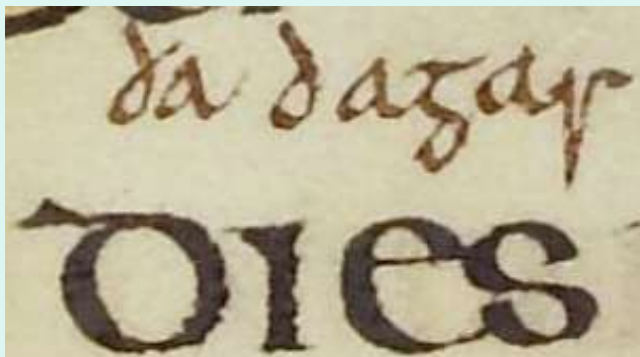 ða dagas
dies